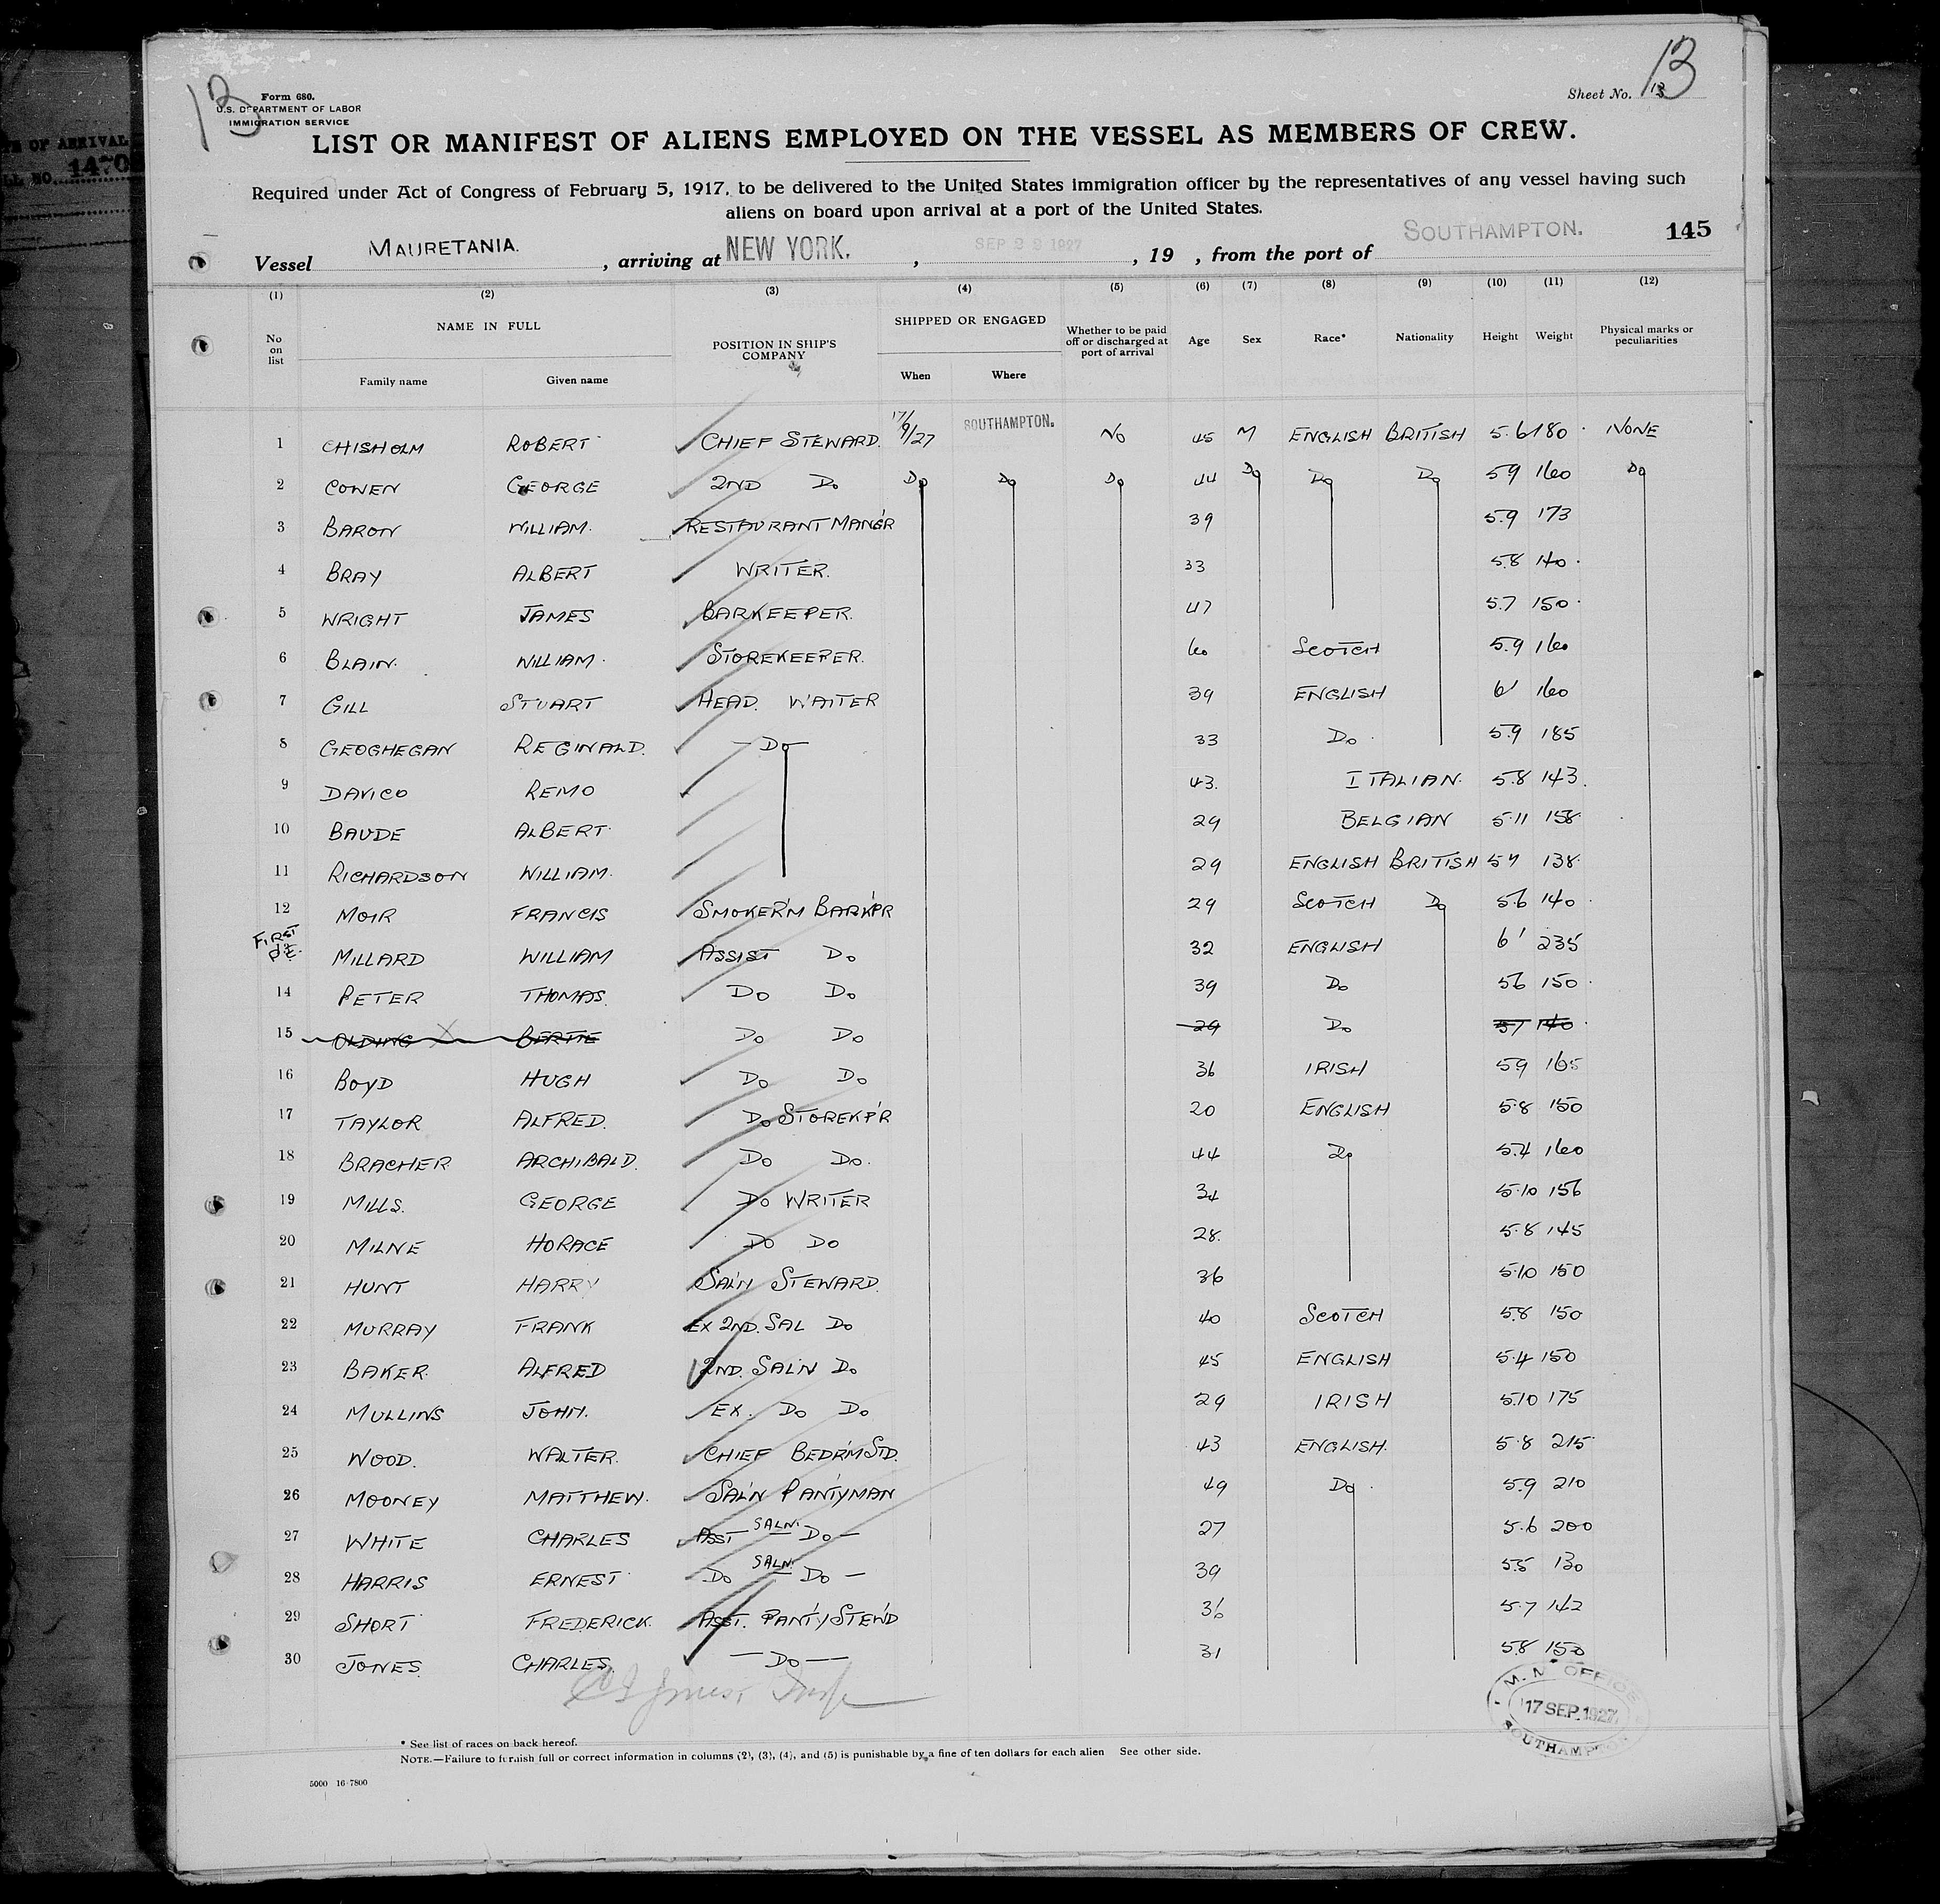 13
Form 680.
U.S. DEPARTMENT OF LABOR
IMMIGRATION SERVICE
Sheet No. 13
13
LIST OR MANIFEST OF ALIENS EMPLOYED ON THE VESSEL AS MEMBERS OF CREW.
Required under Act of Congress of February 5, 1917, to be delivered to the United States immigration officer by the representatives of any vessel having such
aliens on board upon arrival at a port of the United States.
Vessel MAURETANIA. , arriving at NEW YORK. , SEP 1927 , 19 , from the port of SOUTHAMPTON. 145
(1) (2) (3) (4) (5) (6) (7) (8) (9) (10) (11) (12)
No on list NAME IN FULL POSITION IN SHIP'S COMPANY SHIPPED OR ENGAGED Whether to be paid off or discharged at port of arrival Age Sex Race* Nationality Height Weight Physical marks or peculiarities
Family name Given name When Where
1 CHISHOLM ROBERT CHIEF STEWARD. 17/9/27 SOUTHAMPTON. NO 45 M ENGLISH BRITISH 5.6 180 NONE
2 COWEN GEORGE 2ND DO DO DO DO 44 DO DO DO 59 160 DO
3 BARON WILLIAM. RESTAURANT MAN'G'R 39 5.9 173
4 BRAY ALBERT WRITER. 33 5.8 140
5 WRIGHT JAMES BARKEEPER. 47 5.7 150
6 BLAIN. WILLIAM. STOREKEEPER. 60 SCOTCH 5.9 160
7 GILL STUART HEAD. WAITER 39 ENGLISH 6' 160
8 GEOGHEGAN REGINALD. DO 33 DO 5.9 185
9 DAVICO REMO 43. ITALIAN. 5.8 143
10 BAUDE ALBERT 29 BELGIAN 5.11 158
11 RICHARDSON WILLIAM. 29 ENGLISH BRITISH 138
12 MOIR FRANCIS SMOKER'M BARK'PR 29 SCOTCH DO 5.6 140
FIRST
MILLARD WILLIAM ASSIST DO 32 ENGLISH 6' 235
14 PETER THOMAS. DO DO 39 DO 56 150
15 OLDING X BERTIE DO DO 29 DO 57 140
16 BOYD HUGH DO DO 36 IRISH 59 165
17 TAYLOR ALFRED. DO STOREKP'R 20 ENGLISH 5.8 150
18 BRACHER ARCHIBALD. DO DO. 44 DO 5.4 160
19 MILLS. GEORGE DO WRITER 34 5.10 156
20 MILNE HORACE DO DO 28. 5.8 145
21 HUNT HARRY SAL'N STEWARD. 36 5.10 150
22 MURRAY FRANK EX 2ND. SAL DO 40 SCOTCH 5.8 150
23 BAKER. ALFRED 2ND. SAL'N DO 45 ENGLISH 5.4 150
24 MULLINS JOHN. EX. DO DO 29 IRISH 5.10 175
25 WOOD. WALTER. CHIEF BEDR'M STD. 43 ENGLISH. 5.8 215
26 MOONEY MATTHEW. SAL'N PANTYMAN 49 DO 5.9 210
27 WHITE CHARLES ASST SALN. DO 27 5.6 200
28 HARRIS ERNEST DO SALN. DO 39 5.5 130
29 SHORT FREDERICK. ASST. PANT'Y STEW'D 36 5.7 142
30 JONES. CHARLES. DO 31 5.8 150
M. M. OFFICE
17 SEP. 1927
SOUTHAMPTON
* See list of races on back hereof.
NOTE.—Failure to furnish full or correct information in columns (2), (3), (4), and (5) is punishable by a fine of ten dollars for each alien See other side.
5000 16-7800
OF ARRIVAL
NO. 1470